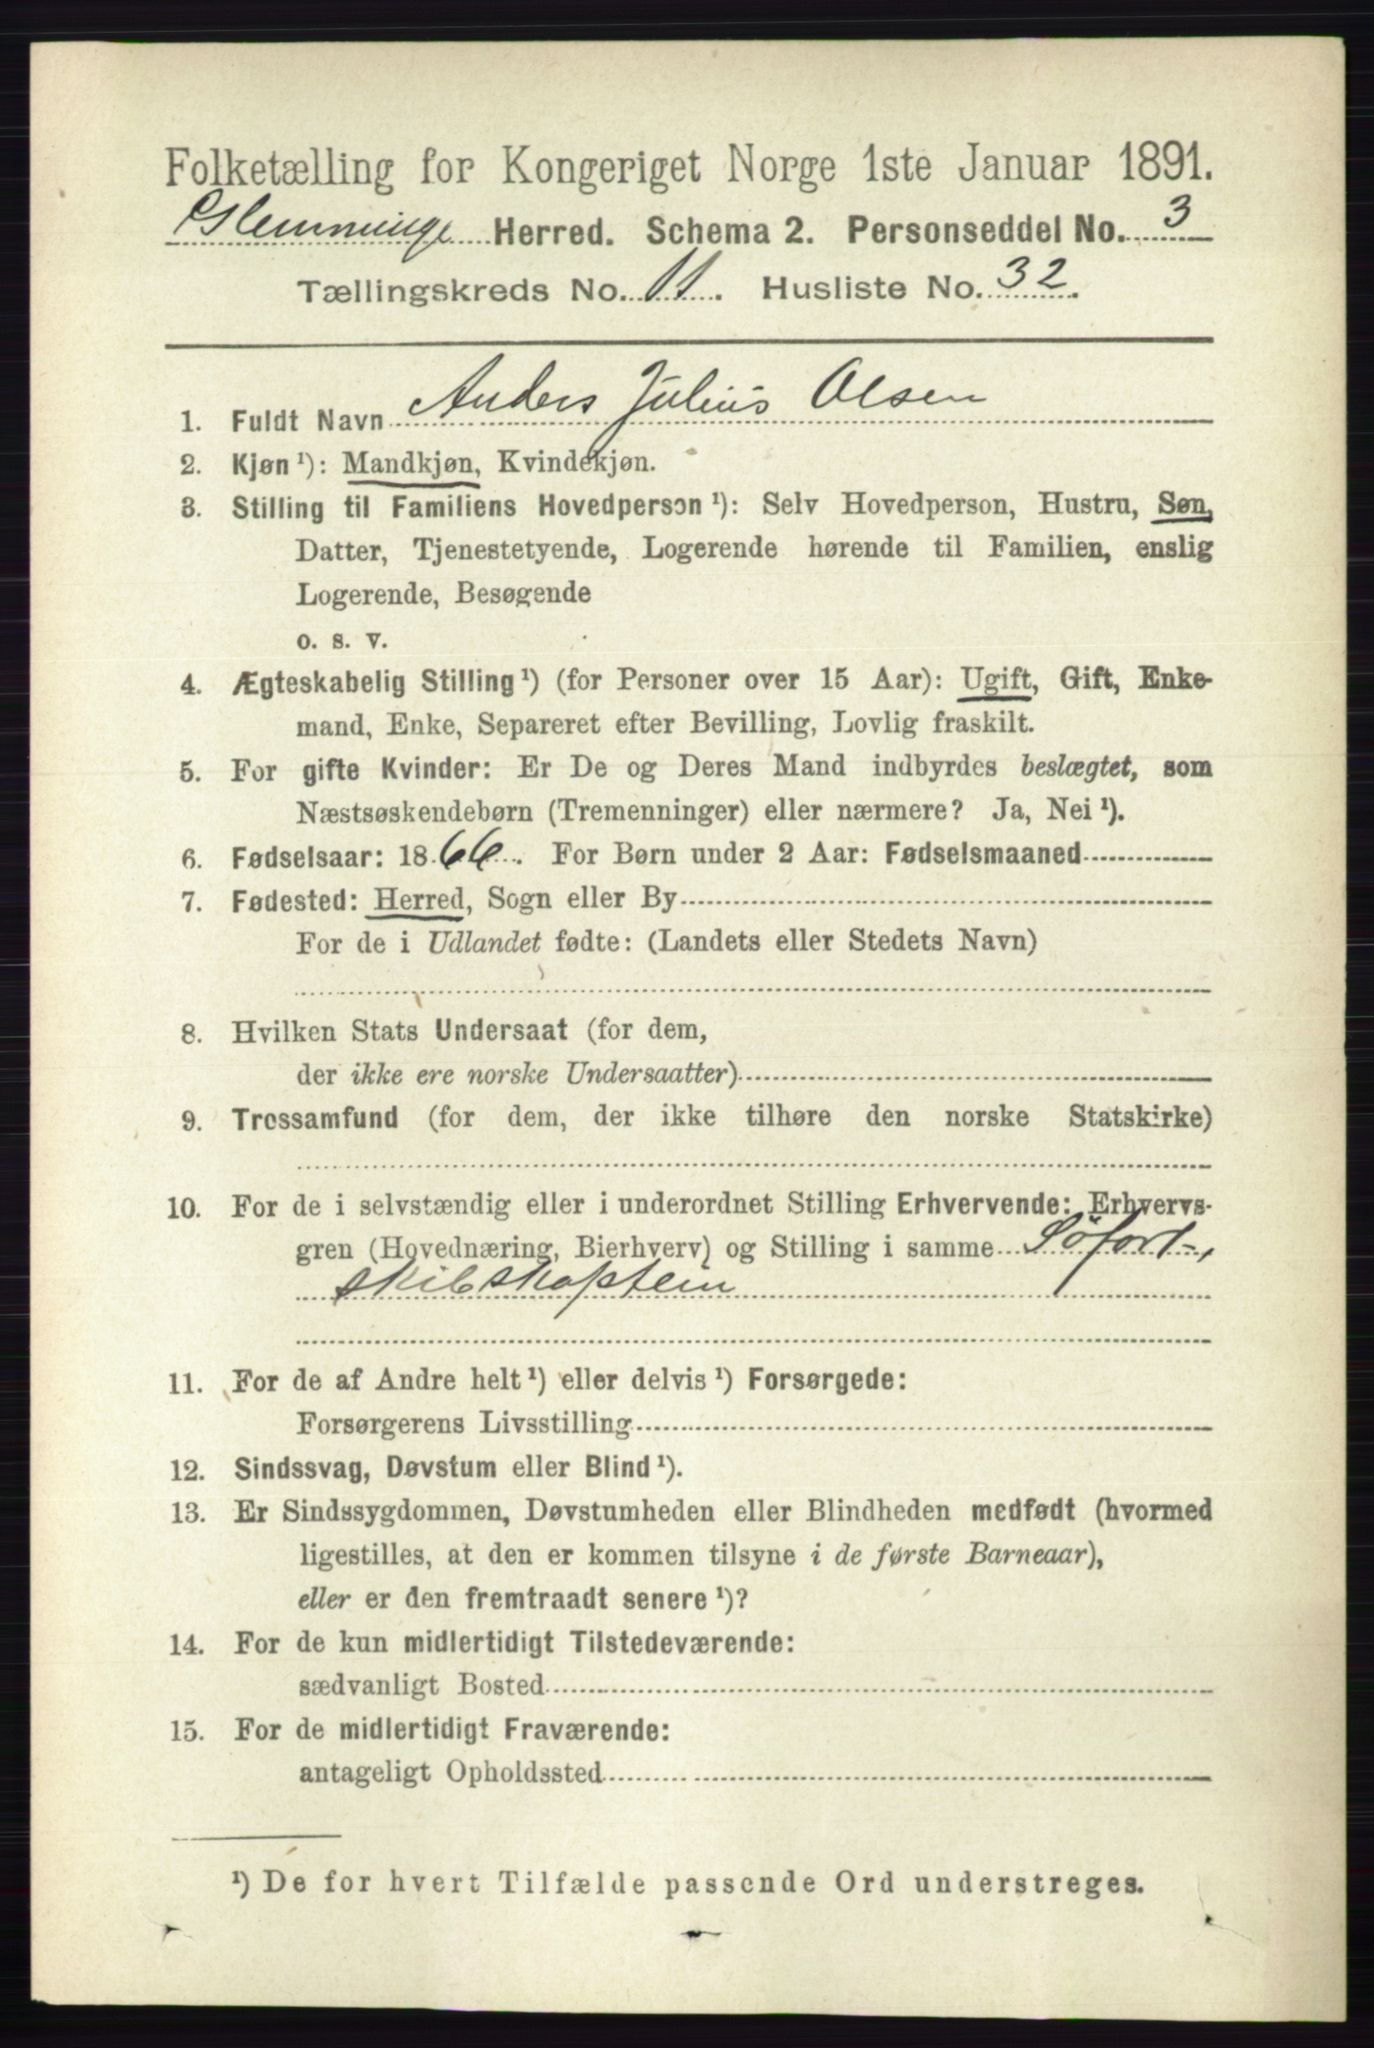 Folketælling for Kongeriget Norge 1ste Januar 1891.
Glemminge Herred. Schema 2. Personseddel No. 3
Tællingskreds No. 11. Husliste No. 32.
1. Fuldt Navn Anders Julius Olsen
2. Kjøn ¹): Mandkjøn, Kvindekjøn.
3. Stilling til Familiens Hovedperson ¹): Selv Hovedperson, Hustru, Søn,
Datter, Tjenestetyende, Logerende hørende til Familien, enslig
Logerende, Besøgende
o. s. v.
4. Ægteskabelig Stilling ¹) (for Personer over 15 Aar): Ugift, Gift, Enke-
mand, Enke, Separeret efter Bevilling, Lovlig fraskilt.
5. For gifte Kvinder: Er De og Deres Mand indbyrdes beslægtet, som
Næstsøskendebørn (Tremenninger) eller nærmere? Ja, Nei ¹).
6. Fødselsaar: 1866. For Børn under 2 Aar: Fødselsmaaned
7. Fødested: Herred, Sogn eller By
For de i Udlandet fødte: (Landets eller Stedets Navn)
8. Hvilken Stats Undersaat (for dem,
der ikke ere norske Undersaatter)
9. Trossamfund (for dem, der ikke tilhøre den norske Statskirke)
10. For de i selvstændig eller i underordnet Stilling Erhvervende: Erhvervs-
gren (Hovednæring, Bierhverv) og Stilling i samme Søfart,
skibskaptein
11. For de af Andre helt ¹) eller delvis ¹) Forsørgede:
Forsørgerens Livsstilling
12. Sindssvag, Døvstum eller Blind ¹).
13. Er Sindssygdommen, Døvstumheden eller Blindheden medfødt (hvormed
ligestilles, at den er kommen tilsyne i de første Barneaar),
eller er den fremtraadt senere ¹)?
14. For de kun midlertidigt Tilstedeværende:
sædvanligt Bosted
15. For de midlertidigt Fraværende:
antageligt Opholdssted
¹) De for hvert Tilfælde passende Ord understreges.